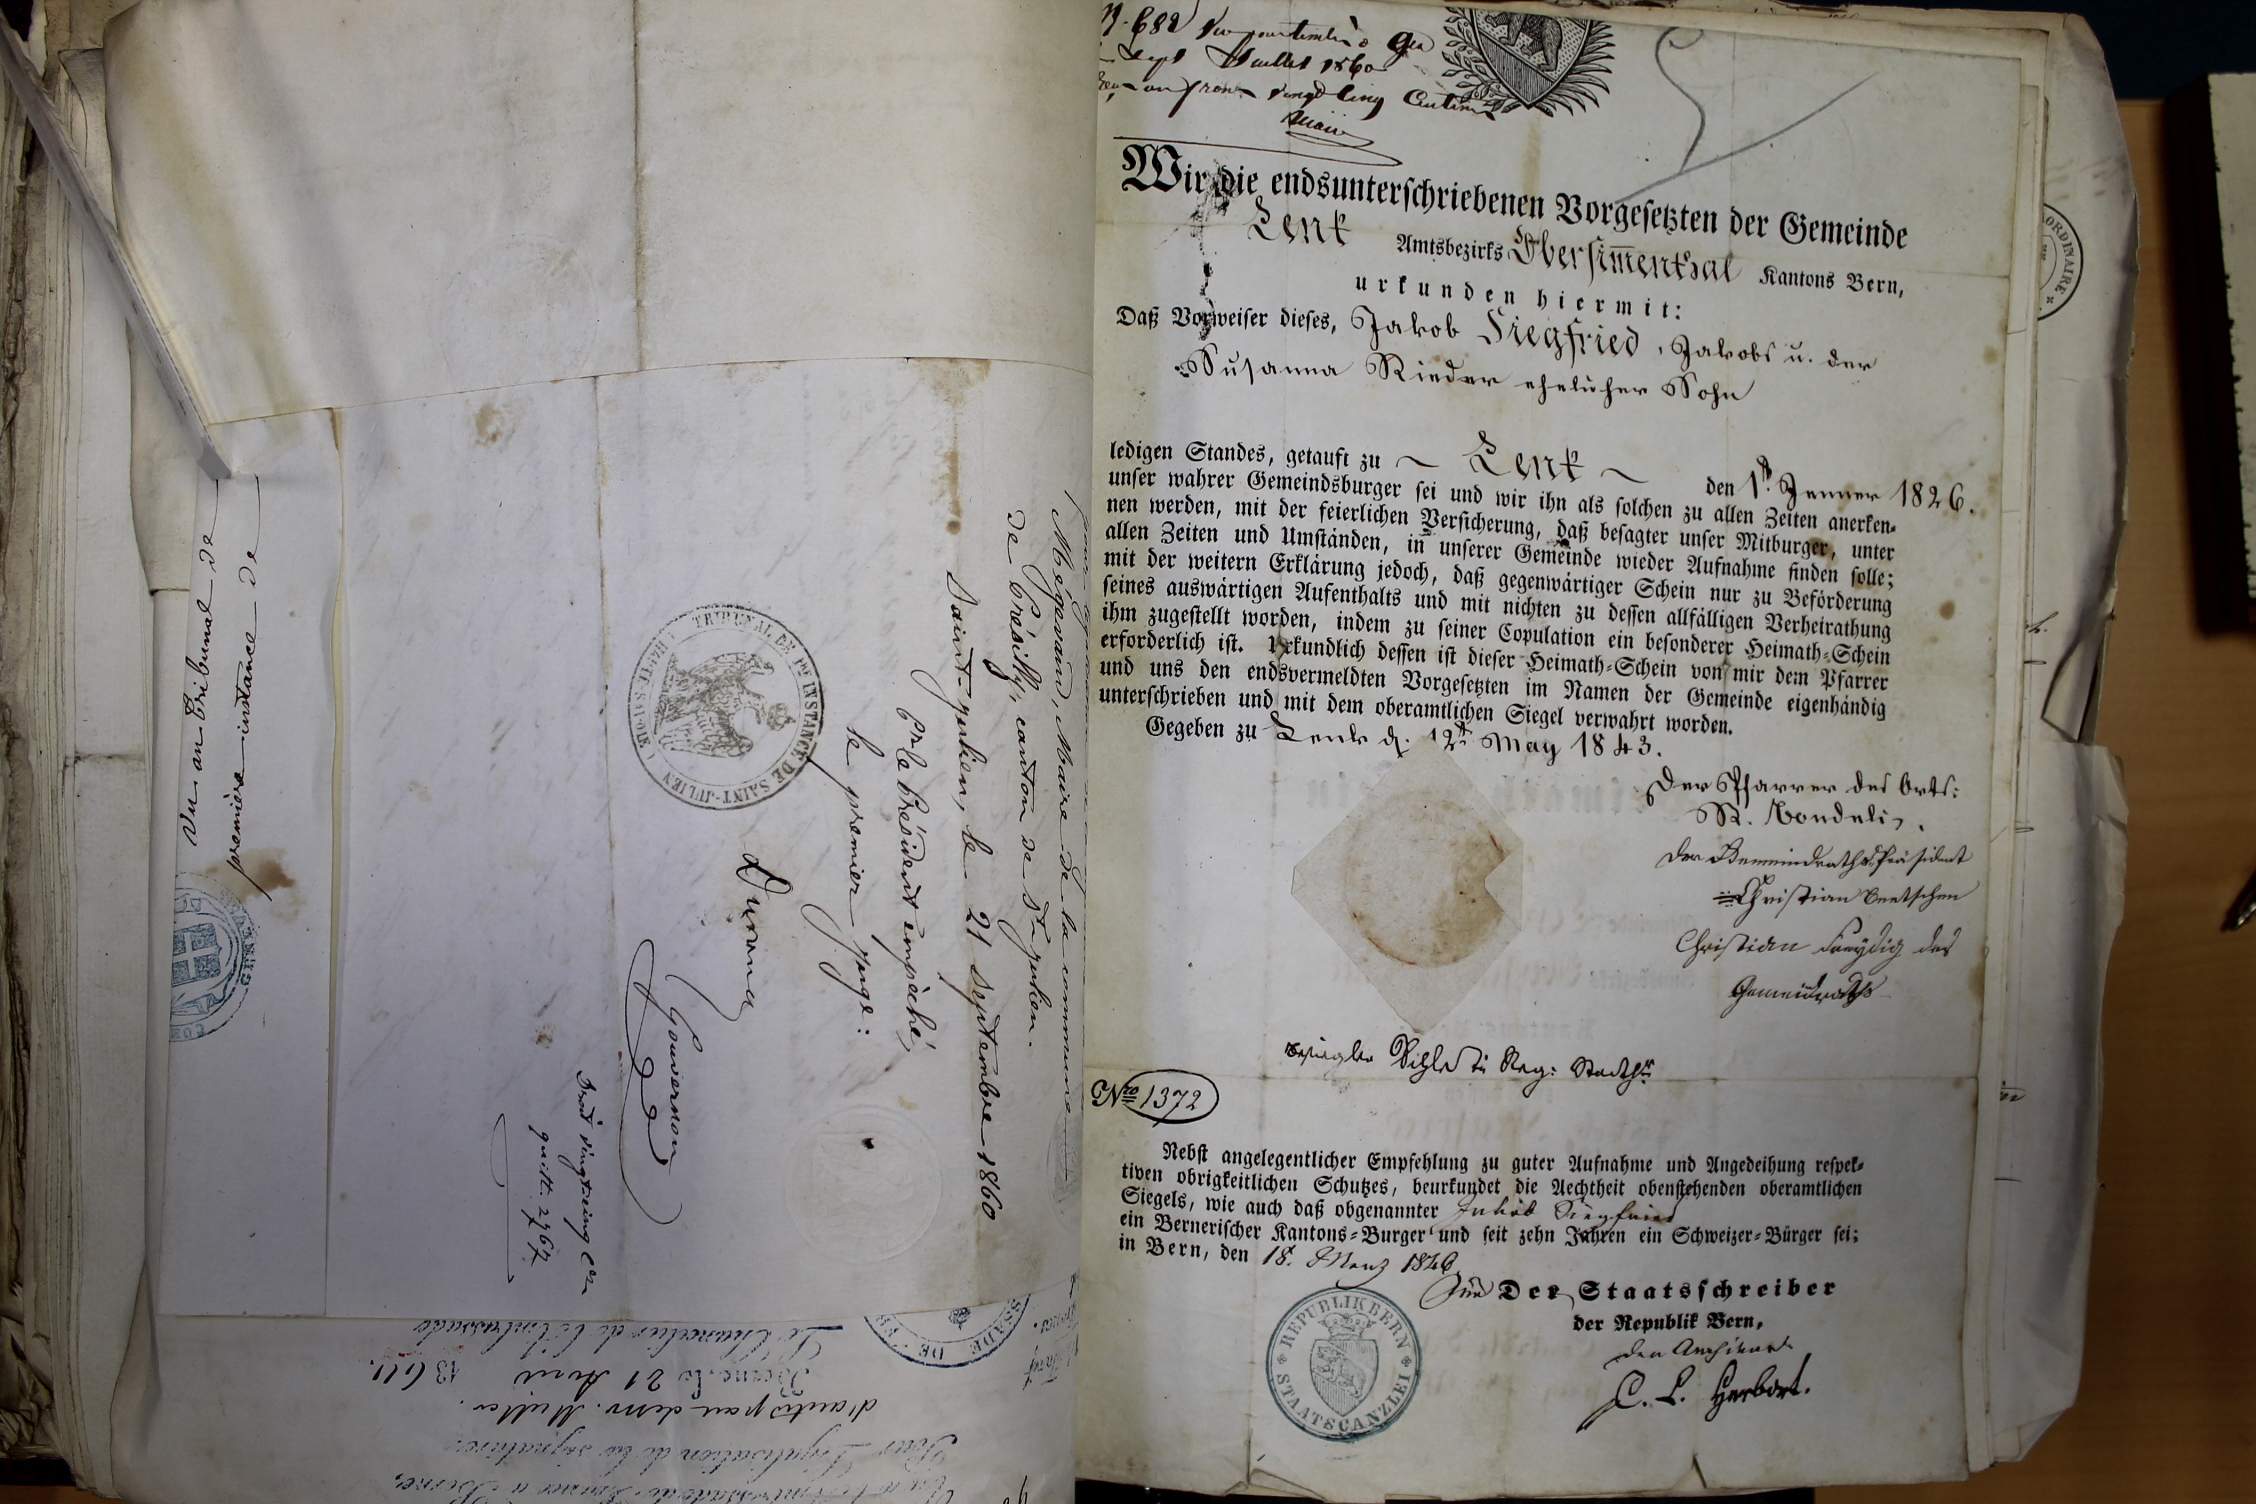 Vu au tribunal de
première instance de
Mégevand, Maire de la commune
de Présilly, canton de St Julien.
Saint-Julien, le 21 septembre 1860
Pr le Président empêché,
le premier juge:
Duvernay
TRIBUNAL DE 1RE INSTANCE DE SAINT-JULIEN (HAUTE-SAVOIE)
Gouvernon
quitt. 2967
Le Chancelier de l'Ambassade
Berne, le 21 Avril
Pour légalisation de la signature
d'autre part de Mr. Muller.
ORDINAIRE
N. 682
Sept Juillet 1860
vingt cinq Centimes
Wir die endsunterschriebenen Vorgesetzten der Gemeinde
Lenk Amtsbezirks Obersimmenthal Kantons Bern,
urkunden hiermit:
Daß Vorweiser dieses, Jakob Siegfried, Jakobs u. der
Susanna Rieder ehelicher Sohn
ledigen Standes, getauft zu ~ Lenk ~ den 1t. Jenner 1826.
unser wahrer Gemeindsburger sei und wir ihn als solchen zu allen Zeiten anerken-
nen werden, mit der feierlichen Versicherung, daß besagter unser Mitburger, unter
allen Zeiten und Umständen, in unserer Gemeinde wieder Aufnahme finden solle;
mit der weitern Erklärung jedoch, daß gegenwärtiger Schein nur zu Beförderung
seines auswärtigen Aufenthalts und mit nichten zu dessen allfälligen Verheirathung
ihm zugestellt worden, indem zu seiner Copulation ein besonderer Heimath-Schein
erforderlich ist. Urkundlich dessen ist dieser Heimath-Schein von mir dem Pfarrer
und uns den endsvermeldten Vorgesetzten im Namen der Gemeinde eigenhändig
unterschrieben und mit dem oberamtlichen Siegel verwahrt worden.
Gegeben zu Lenk d. 12t May 1843.
Der Pfarrer des Orts:
R. Bondeli.
Der Gemeindrathspräsident
Christian Beetschen
Christian Freydig des
Gemeindraths
Nro 1372
Nebst angelegentlicher Empfehlung zu guter Aufnahme und Angedeihung respek-
tiven obrigkeitlichen Schutzes, beurkundet die Aechtheit obenstehenden oberamtlichen
Siegels, wie auch daß obgenannter Jakob Siegfried
ein Bernerischer Kantons-Burger und seit zehn Jahren ein Schweizer-Bürger sei;
in Bern, den 18. Merz 1846.
Für Der Staatsschreiber
der Republik Bern,
Der Archivar
C. L. Herbort.
REPUBLIK BERN STAATSCANZLEI